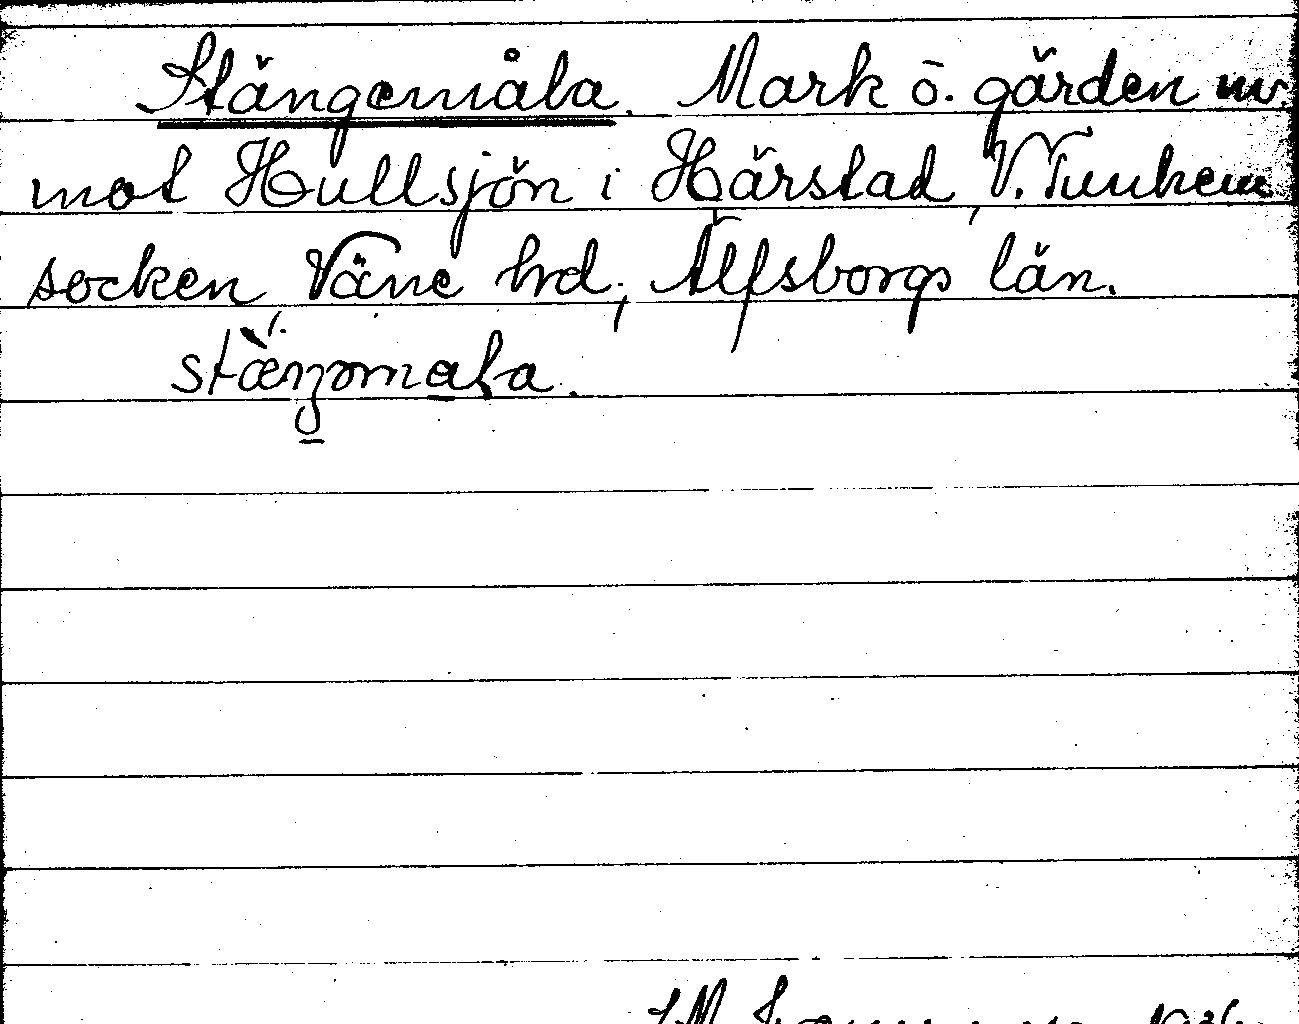 Stängemåla. Mark ö. gården
mot Hullsjön i Härstad, V. Tunhem
socken, Väne hrd; Älfsborgs län.